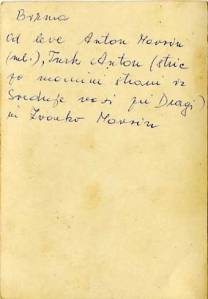 Birma
Od leve Anton Movrin
(ml.), Turk Anton (stric
po mamini strani iz
Srednje vasi pri Dragi)
in Zvonko Movrin